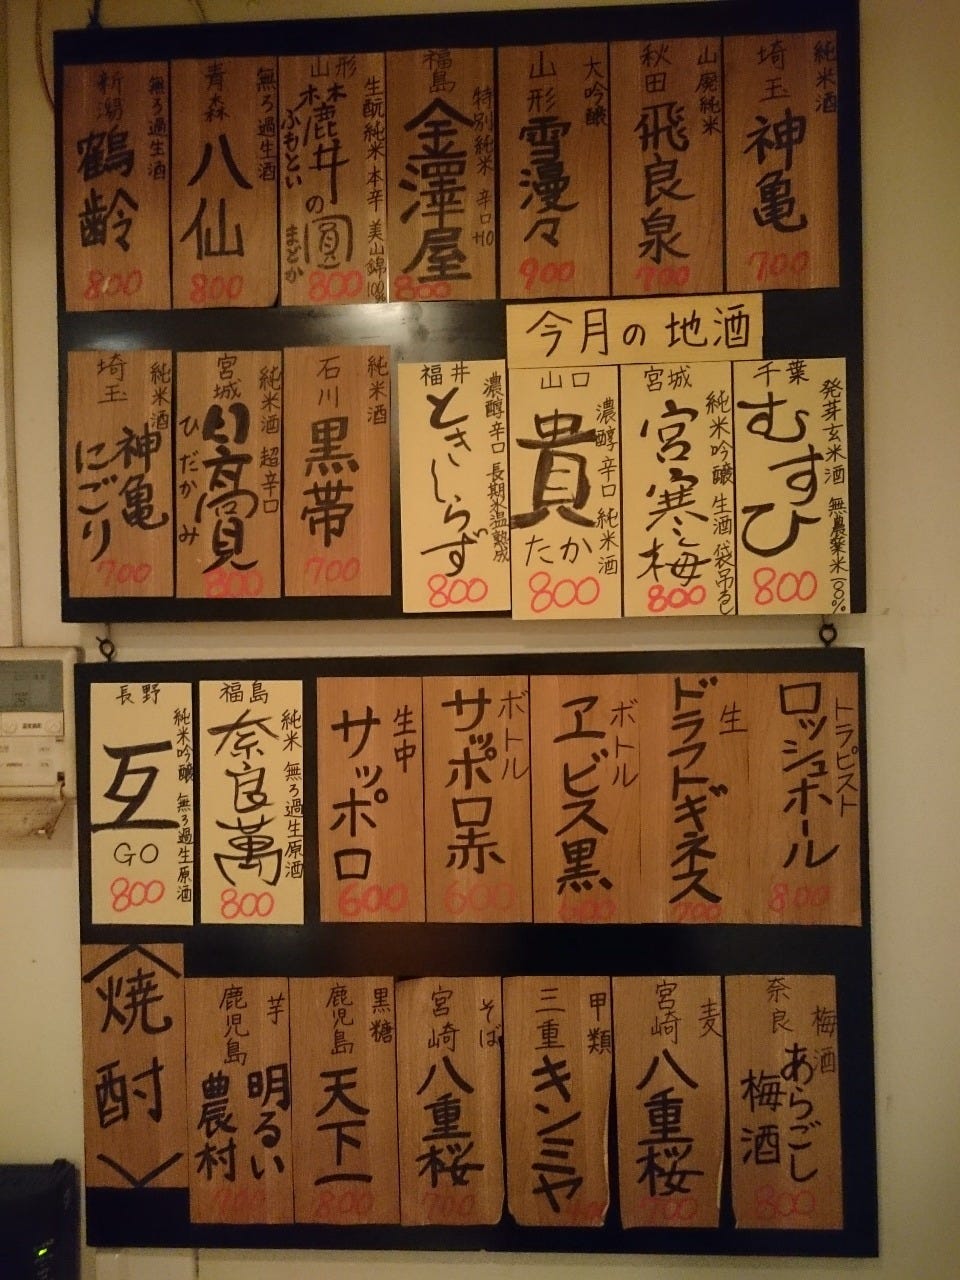 純米酒
埼玉
神亀
700
山廃純米
秋田
飛良泉
700
大吟醸
山形
雪漫々
900
特別純米 辛口+10
福島
金澤屋
800
生酛純米 本辛 美山錦100%
山形
ふもとい
の圓
まどか
800
無ろ過生酒
青森
八仙
800
無ろ過生酒
新潟
鶴齢
800
今月の地酒
発芽玄米酒 無農薬米100%
千葉
むすひ
800
純米吟醸 生酒 袋吊るし
宮城
宮寒梅
800
濃醇辛口 純米酒
山口
貴
たか
800
濃醇辛口 長期氷温熟成
福井
ときしらず
800
純米酒
石川
黒帯
700
純米酒 超辛口
宮城
日高見
ひだかみ
800
純米酒
埼玉
神亀
にごり
700
トラピスト
ロッシュホール
800
生
ドラフトギネス
700
ボトル
ヱビス黒
600
ボトル
サッポロ赤
600
生中
サッポロ
600
純米 無ろ過生原酒
福島
奈良萬
800
純米吟醸 無ろ過生原酒
長野
互
GO
800
梅酒
奈良
あらごし
梅酒
800
麦
宮崎
八重桜
700
甲類
三重
キンミヤ
そば
宮崎
八重桜
700
黒糖
鹿児島
天下一
800
芋
鹿児島
明るい
農村
700
〈焼酎〉